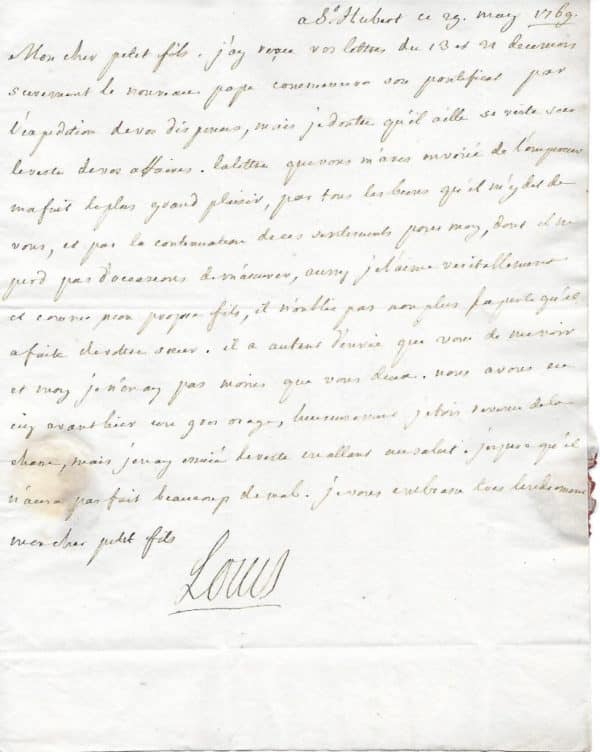 a St. Hubert ce 29. may 1769.
Mon cher petit fils. j'ay reçeu vos lettres du 13 et 21 de ce mois
seurement le nouveau pape commencera son pontificat par
l'expedition de vos dispenses, mais je doute qu'il aille si viste sur
le reste de vos affaires. la lettre que vous m'avés envoiée de l'empereur
m'a fait le plus grand plaisir, par tous les biens qu'il m'y dit de
vous, et par la continuation de ses sentiments pour moy, dont il ne
perd pas d'occasions de m'assurer, aussy je l'aime veritablement
et comme mon propre fils, il n'oublie pas non plus la perte qu'il
a faite de votre sœur. il a autant d'envie que vous de me voir
et moy je n'en ay pas moins que vous deux. nous avons eu
icy avant hier un gros orage, heureusement j'etois revenu de la
chasse, mais j'en ay essuié le reste en allant au salut. j'espere qu'il
n'aura pas fait beaucoup de mal. je vous embrasse tres tendrement
mon cher petit fils
Louis